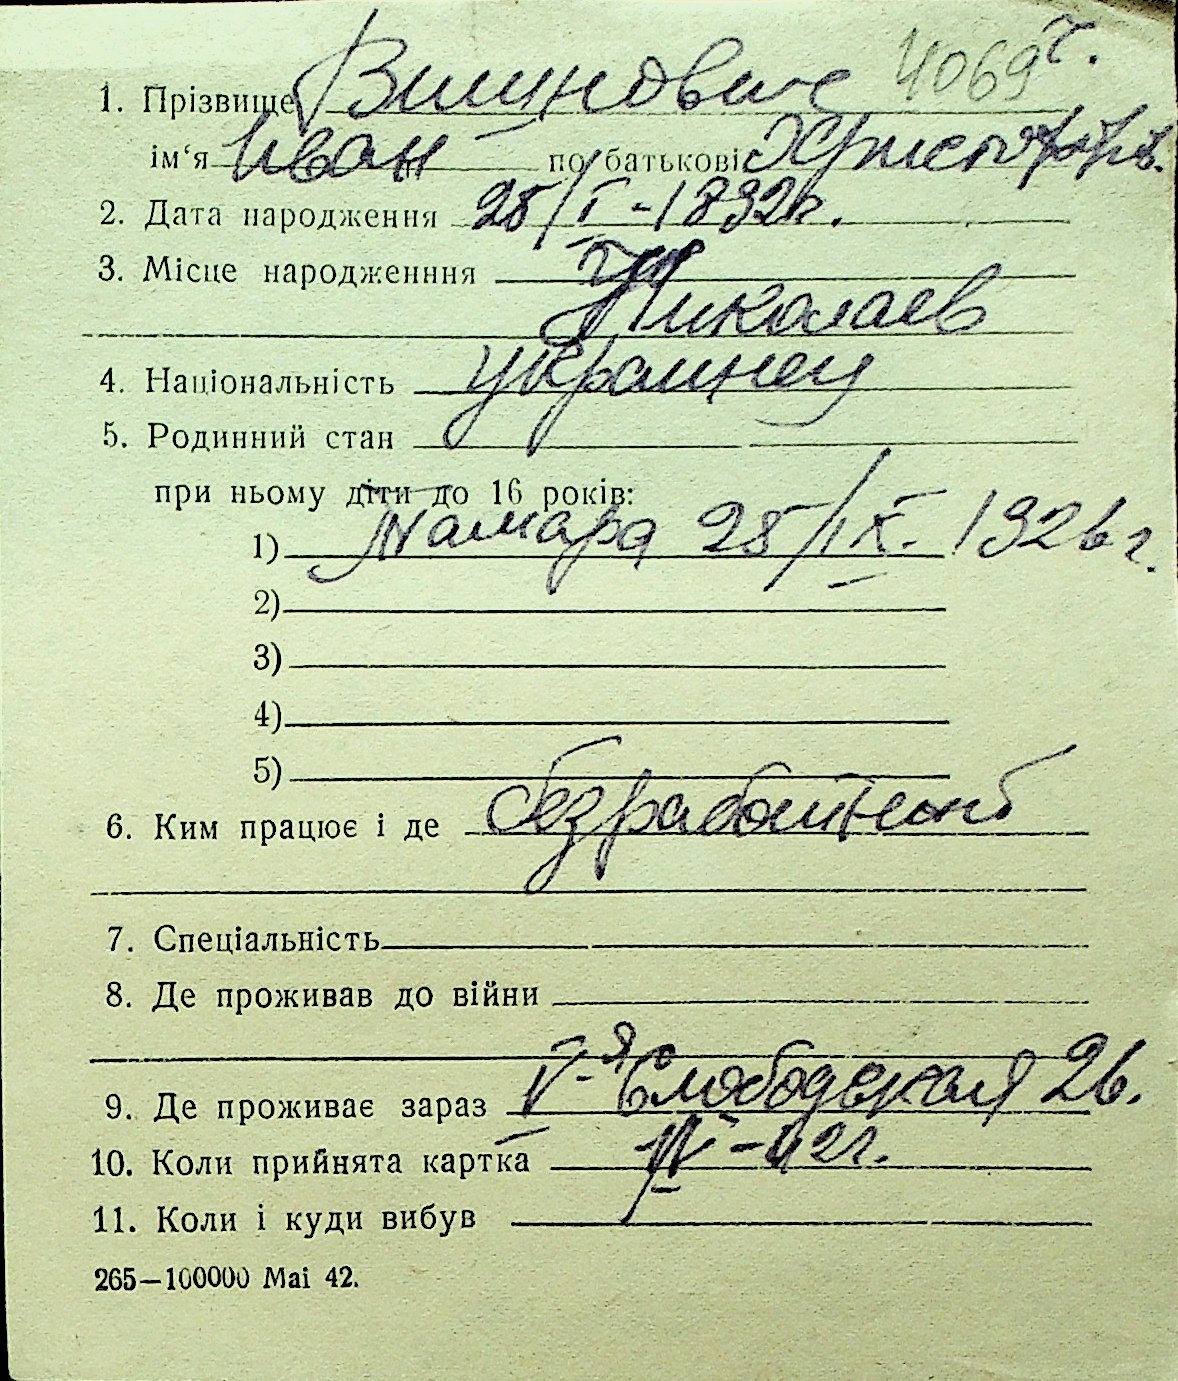 4069 г.
1. Прізвище
ім'я Иван по батькові Христофор.
2. Дата народження 25/I-1892г.
3. Місце народженння
Николаев
4. Національність украинец
5. Родинний стан
при ньому діти до 16 років:
1) Тамара 25/IX. 1926г.
2)
3)
4)
5)
6. Ким працює і де безработный
7. Спеціальність
8. Де проживав до війни
9. Де проживає зараз V-я Слободская 26.
10. Коли прийнята картка -42г.
11. Коли і куди вибув
265—100000 Маі 42.